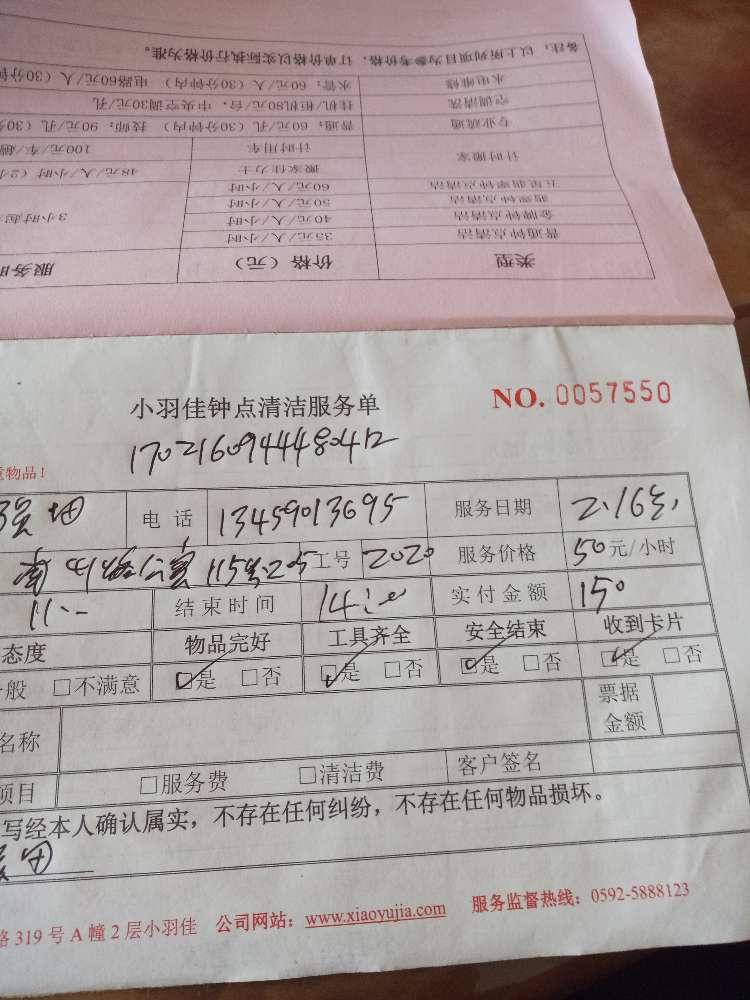 备注：以上所列项目为参考价格，订单价格以实际执行价格为准。
水电维修 水管：60元/人（30分钟内） 电路60元/人（30分钟
空调清洗 挂机/柜机80元/台，中央空调30元/孔
专业疏通 普通：60元/孔（30分钟内） 技师：90元/孔（30
计时搬家 计时用车 100元/车/趟
搬家住力士 48元/人/小时（2小
五星翡翠钟点清洁 60元/人/小时
翡翠钟点清洁 50元/人/小时
金牌钟点清洁 40元/人/小时
普通钟点清洁 35元/人/小时 3小时起
类型 价格（元） 服务时
小羽佳钟点清洁服务单 NO. 0057550
17021609444480412
物品！
电话 13459013695 服务日期 2.16
115 205 工号 2020 服务价格 50元/小时
11:- 结束时间 14:00 实付金额 150
态度 物品完好 工具齐全 安全结束 收到卡片
般 □不满意 □是 □否 □是 □否 □是 □否 □是 □否
名称 票据金额
项目 □服务费 □清洁费 客户签名
写经本人确认属实，不存在任何纠纷，不存在任何物品损坏。
路319号A幢2层小羽佳 公司网站：www.xiaoyujia.com 服务监督热线：0592-5888123